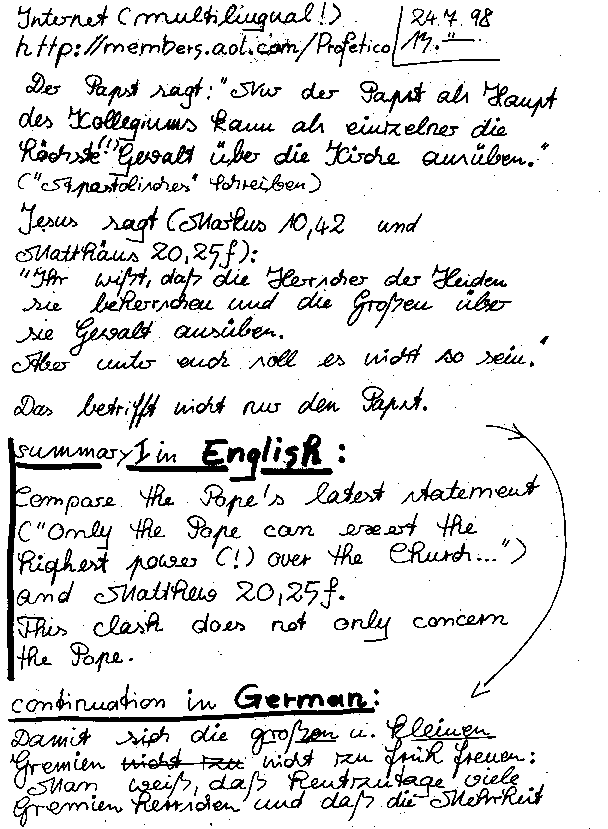 Internet (multilingual!)
24.7.98
http://members.aol.com/Profetico
Der Papst sagt: "Nur der Papst als Haupt
des Kollegiums kann als einzelner die
höchste(!) Gewalt über die Kirche ausüben."
("Apostolisches" Schreiben)
Jesus sagt (Markus 10,42 und
Matthäus 20,25f):
"Ihr wißt, daß die Herrscher der Heiden
sie beherrschen und die Großen über
sie Gewalt ausüben.
Aber unter euch soll es nicht so sein."
Das betrifft nicht nur den Papst.
summary in English:
Compare the Pope's latest statement
("Only the Pope can exert the
highest power (!) over the Church...")
and Matthew 20,25f.
This clash does not only concern
the Pope.
continuation in German:
Damit sich die großen u. kleinen
Gremien nicht zu nicht zu früh freuen:
Man weiß, daß heutzutage viele
Gremien herrschen und daß die Mehrheit